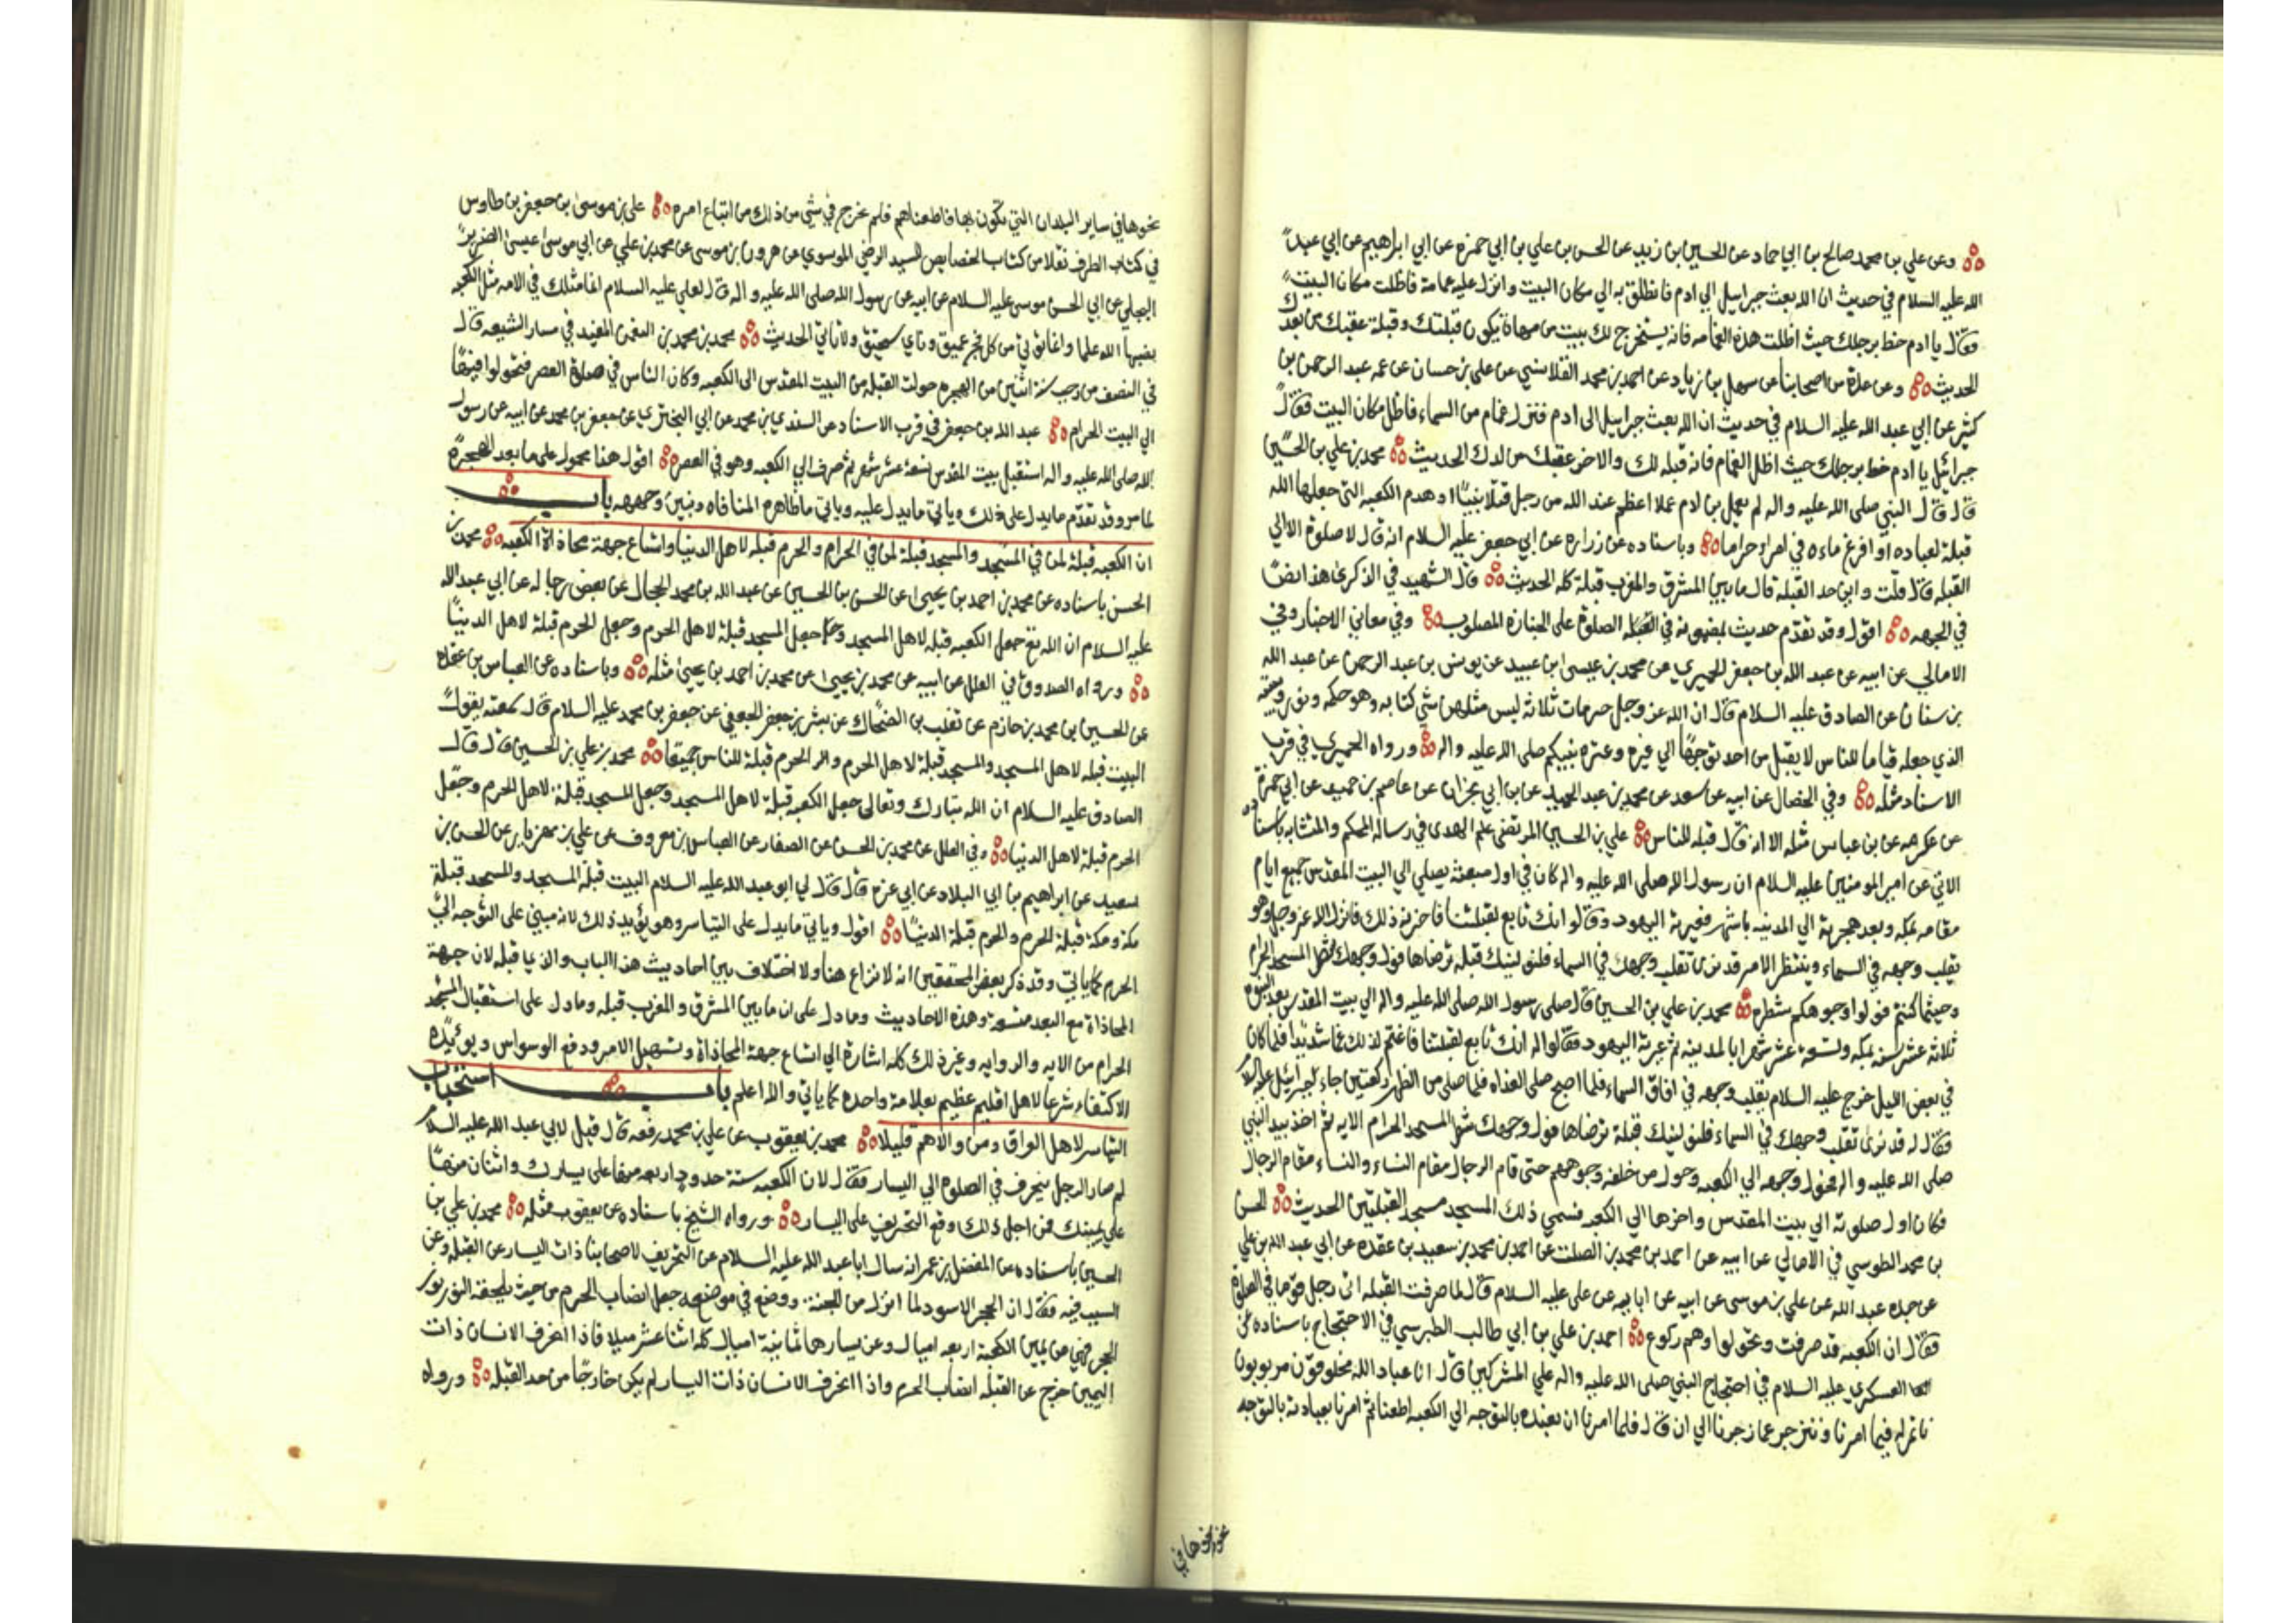 وعن علي بن محمد صالح بن ابي حماد عن الحسين بن زيد عن الحسن بن علي بن ابي حمزه عن ابي ابراهيم عن ابي عبد
الله عليه السلام في حديث ان الله بعث جبراييل الي ادم فانطلق به الي مكان البيت وانزل عليه غمامة فاظلت مكان البيت
فقال يا ادم خط برجلك حيث اظلت هذه الغمامه فانه يستخرج لك بيت من مهاة يكون قبلتك وقبلة عقبك من بعدك
الحديث وعن عدة من اصحابنا عن سهل بن زياد عن احمد بن محمد القلانسي عن علي بن حسان عن عمه عبد الرحمن بن
كثير عن ابي عبد الله عليه السلام في حديث ان الله بعث جبراييل الى ادم فنزل غمام من السماء فاظل مكان البيت فقال
جبرائيل يا ادم خط برجلك حيث اظل الغمام فانه قبله لك والاخر عقبك من لدك الحديث محمد بن علي بن الحسين
قال قال النبي صلى الله عليه واله لم يعمل بن ادم عملا اعظم عند الله من رجل قتل نبيا او هدم الكعبه التي جعلها الله
قبلة لعباده او افرغ ماءه في امراة حراما وباسناده عن زراره عن ابي جعفر عليه السلام انه قال لا صلوة الا الي
القبله قال قلت واين حد القبلة قال ما بين المشرق والمغرب قبلة كله الحديث قال الشهيد في الذكرى هذا ايضا
في الجهه اقول وقد تقدم حديث بمضمونه في القبله الصلوة على الجنازه المصلوب وفي معاني الاخبار وفي
الامالي عن ابيه عن عبد الله بن جعفر الحميري عن محمد بن عيسى ابن عبيد عن يونس بن عبد الرحمن عن عبد الله
بن سنان عن الصادق عليه السلام قال ان الله عز وجل حرمات ثلاثة ليس مثلهن شي كتابه وهو حكمه ونوره وبيته
الذي جعله قياما للناس لا يقبل من احد توجها الي غيره وعترة نبيكم صلى الله عليه واله ورواه الحميري في قرب
الاسناد مثله وفي الخصال عن ابيه عن سعد عن محمد بن عبد الحميد عن بن ابي نجران عن عاصم بن حميد عن ابي حمزة
عن عكرمه عن بن عباس مثله الا انه قال قبله للناس علي بن الحسين المرتضى علم الهدى في رسالة المحكم والمتشابه باسناده
الاتي عن امير المومنين عليه السلام ان رسول الله صلى الله عليه واله كان في اول مبعثه يصلي الي البيت المقدس جميع ايام
مقامه بمكه وبعد هجرته الي المدينه باشهر فعيرته اليهود وقالوا انك تابع لقبلتنا فاحزنه ذلك فانزل الله عز وجل وهو
يقلب وجهه في السماء وينتظر الامر قد نرى تقلب وجهك في السماء فلنولينك قبلة ترضاها فول وجهك شطر المسجد الحرام
وحيثما كنتم فولوا وجوهكم شطره محمد بن علي بن الحسين قال صلى رسول الله صلى الله عليه واله الي بيت المقدس بعد النبوة
ثلاثه عشر سنه بمكه وتسعة عشر شهرا بالمدينه ثم عيرته اليهود فقالوا له انك تابع لقبلتنا فاغتم لذلك غما شديدا فلما كان
في بعض الليل خرج عليه السلام يقلب وجهه في افاق السماء فلما اصبح صلى الغداه فلما صلى من الظهر ركعتين جاءه جبرائيل عليه السلام
فقال له قد نرى تقلب وجهك في السماء فلنولينك قبلة ترضاها فول وجهك شطر المسجد الحرام الايه ثم اخذ بيد النبي
صلى الله عليه واله فحول وجهه الي الكعبه وحول من خلفه وجوههم حتى قام الرجال مقام النساء والنساء مقام الرجال
فكان اول صلوته الي بيت المقدس واخرها الي الكعبه فسمي ذلك المسجد مسجد القبلتين الحديث الحسن
بن محمد الطوسي في الامالي عن ابيه عن احمد بن محمد بن الصلت عن احمد بن محمد بن سعيد بن عقده عن ابي عبد الله بن علي
عن جده عبد الله عن علي بن موسى عن ابيه عن ابايه عن علي عليه السلام قال لما صرفت القبله اتى رجل قوما في الصلوة
فقال ان الكعبه قد صرفت وتحولوا وهم ركوع احمد بن علي بن ابي طالب الطبرسي في الاحتجاج باسناده عن
العسكري عليه السلام في احتجاج النبي صلى الله عليه واله علي المشركين قال انا عباد الله مخلوقون مربوبون
ناتمر له فيما امرنا وننزجر عما زجرنا الي ان قال فلما امرنا ان نعبده بالتوجه الي الكعبه اطعنا ثم امرنا بعبادته بالتوجه
نحوها في
نحوها في ساير البلدان التي تكون بها فاطعناهم فلم نخرج في شي من ذلك من اتباع امره علي بن موسى بن جعفر بن طاوس
في كتاب الطرف نقلا من كتاب الخصايص للسيد الرضي الموسوي عن هرون بن موسى عن محمد بن علي عن ابي موسى عيسى الضرير
البجلي عن ابي الحسن موسى عليه السلام عن ابيه عن رسول الله صلى الله عليه واله قال لعلي عليه السلام انما مثلك في الامه مثل الكعبه
نصبها الله علما وانما تؤتي من كل فج عميق وناي سحيق ولا تاتي الحديث محمد بن محمد بن النعمن المفيد في مسار الشيعه قال
في النصف من رجب سنة اثنين من الهجره حولت القبله من البيت المقدس الى الكعبه وكان الناس في صلوة العصر فتحولوا فيها
الي البيت الحرام عبد الله بن جعفر في قرب الاسناد عن السندي بن محمد عن ابي البختري عن جعفر بن محمد عن ابيه عن رسول
الله صلى الله عليه واله استقبل بيت المقدس تسعة عشر شهر ثم صرف الي الكعبه وهو في العصر اقول هذا محمول على ما بعد الهجرة
لما مر وقد تقدم ما يدل على ذلك وياتي ما يدل عليه وياتي ما ظاهره المنافاه ونبين وجهه باب
ان الكعبه قبلة لمن في المسجد والمسجد قبلة لمن في الحرام والحرم قبله لاهل الدنيا واتساع جهة محاذاة الكعبه محمد بن
الحسن باسناده عن محمد بن احمد بن يحيى عن الحسن بن الحسين عن عبد الله بن محمد الحجال عن بعض رجاله عن ابي عبد الله
عليه السلام ان الله تع جعل الكعبه قبله لاهل المسجد وجعل المسجد قبلة لاهل الحرم وجعل الحرم قبلة لاهل الدنيا
ورواه الصدوق في العلل عن ابيه عن محمد بن يحيى عن محمد بن احمد بن يحيى مثله وباسناده عن العباس بن عقده
عن الحسين بن محمد بن حازم عن تغلب بن الضحاك عن بشر بن جعفر الجعفي عن جعفر بن محمد عليه السلام قال سمعته يقول
البيت قبله لاهل المسجد والمسجد قبلة لاهل الحرم والحرم قبلة للناس جميعا محمد بن علي بن الحسين قال قال
الصادق عليه السلام ان الله تبارك وتعالى جعل الكعبه قبلة لاهل المسجد وجعل المسجد قبلة لاهل الحرم وجعل
الحرم قبلة لاهل الدنيا وفي العلل عن محمد بن الحسن عن الصفار عن العباس بن معروف عن علي بن مهزيار عن الحسن بن
سعيد عن ابراهيم بن ابي البلاد عن ابي غرة قال قال لي ابو عبد الله عليه السلام البيت قبلة المسجد والمسجد قبلة
مكة ومكة قبلة الحرم والحرم قبلة الدنيا اقول وياتي ما يدل على التياسر وهو يؤيد ذلك لانه مبني على التوجه الي
الحرم كما ياتي وقد ذكر بعض المحققين انه لا نزاع هنا ولا اختلاف بين احاديث هذا الباب والذي قبله لان جهة
المحاذاة مع البعد متسعة وهذه الاحاديث وما دل على ان ما بين المشرق والمغرب قبله وما دل على استقبال المسجد
الحرام من الايه والروايه وغير ذلك كله اشارة الي اتساع جهة المحاذاة وتسهيل الامر ودفع الوسواس ويؤيده
الاكتفاء شرعا لاهل اقليم عظيم بعلامة واحده كما ياتي والله اعلم باب استحباب
التياسر لاهل العراق ومن والاهم قليلا محمد بن يعقوب عن علي بن محمد رفعه قال قيل لابي عبد الله عليه السلام
لم صار الرجل ينحرف في الصلوه الي اليسار فقال لان الكعبه ستة حدود اربعه منها على يسارك واثنان منها
علي يمينك فمن اجل ذلك وقع التحريف على اليسار ورواه الشيخ باسناده عن يعقوب مثله محمد بن علي بن
الحسين باسناده عن المفضل بن عمر انه سال ابا عبد الله عليه السلام عن التحريف لاصحابنا ذات اليسار عن القبله وعن
السبب فيه فقال ان الحجر الاسود لما انزل من الجنة ووضع في موضعه جعل انصاب الحرم من حيث يلحقه النور نور
الحجر فهي عن يمين الكعبة اربعه اميال وعن يسارها ثمانية اميال كله اثنا عشر ميلا فاذا انحرف الانسان ذات
اليمين خرج عن القبله انصاب الحرم واذا انحرف الانسان ذات اليسار لم يكن خارجا من حد القبله ورواه